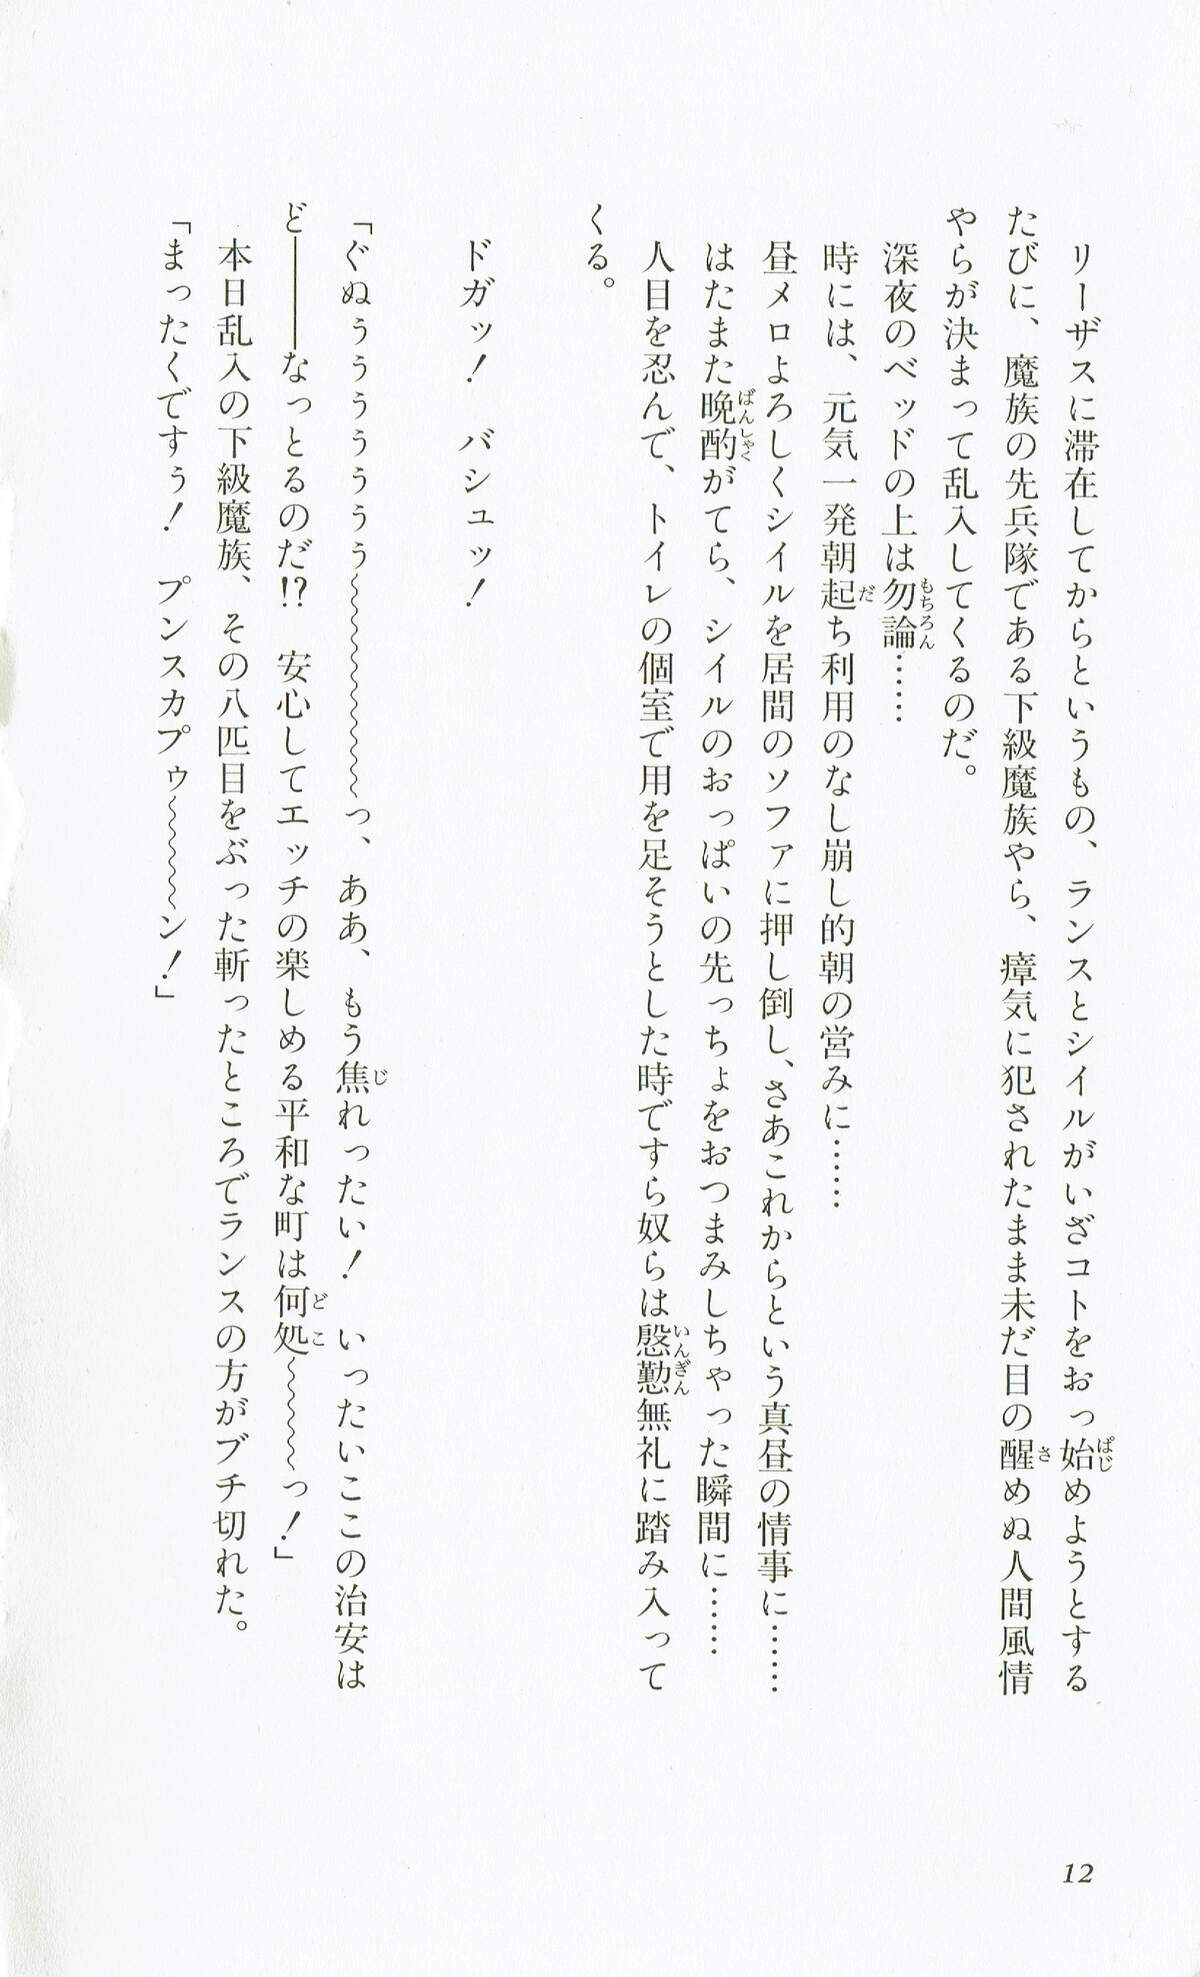 リーザスに滞在してからというもの、ランスとシイルがいざコトをおっ始めようとする
たびに、魔族の先兵隊である下級魔族やら、瘴気に犯されたまま未だ目の醒めぬ人間風情
やらが決まって乱入してくるのだ。
深夜のベッドの上は勿論……
時には、元気一発朝起ち利用のなし崩し的朝の営みに……
昼メロよろしくシイルを居間のソファに押し倒し、さあこれからという真昼の情事に……
はたまた晩酌がてら、シイルのおっぱいの先っちょをおつまみしちゃった瞬間に……
人目を忍んで、トイレの個室で用を足そうとした時ですら奴らは慇懃無礼に踏み入って
くる。
ドガッ！　バシュッ！
「ぐぬぅぅぅぅぅぅ～～～～～～っ、ああ、もう焦れったい！　いったいここの治安は
ど―――なっとるのだ!?　安心してエッチの楽しめる平和な町は何処～～～～っ！」
本日乱入の下級魔族、その八匹目をぶった斬ったところでランスの方がブチ切れた。
「まったくですぅ！　プンスカプゥ～～～～ン！」
12